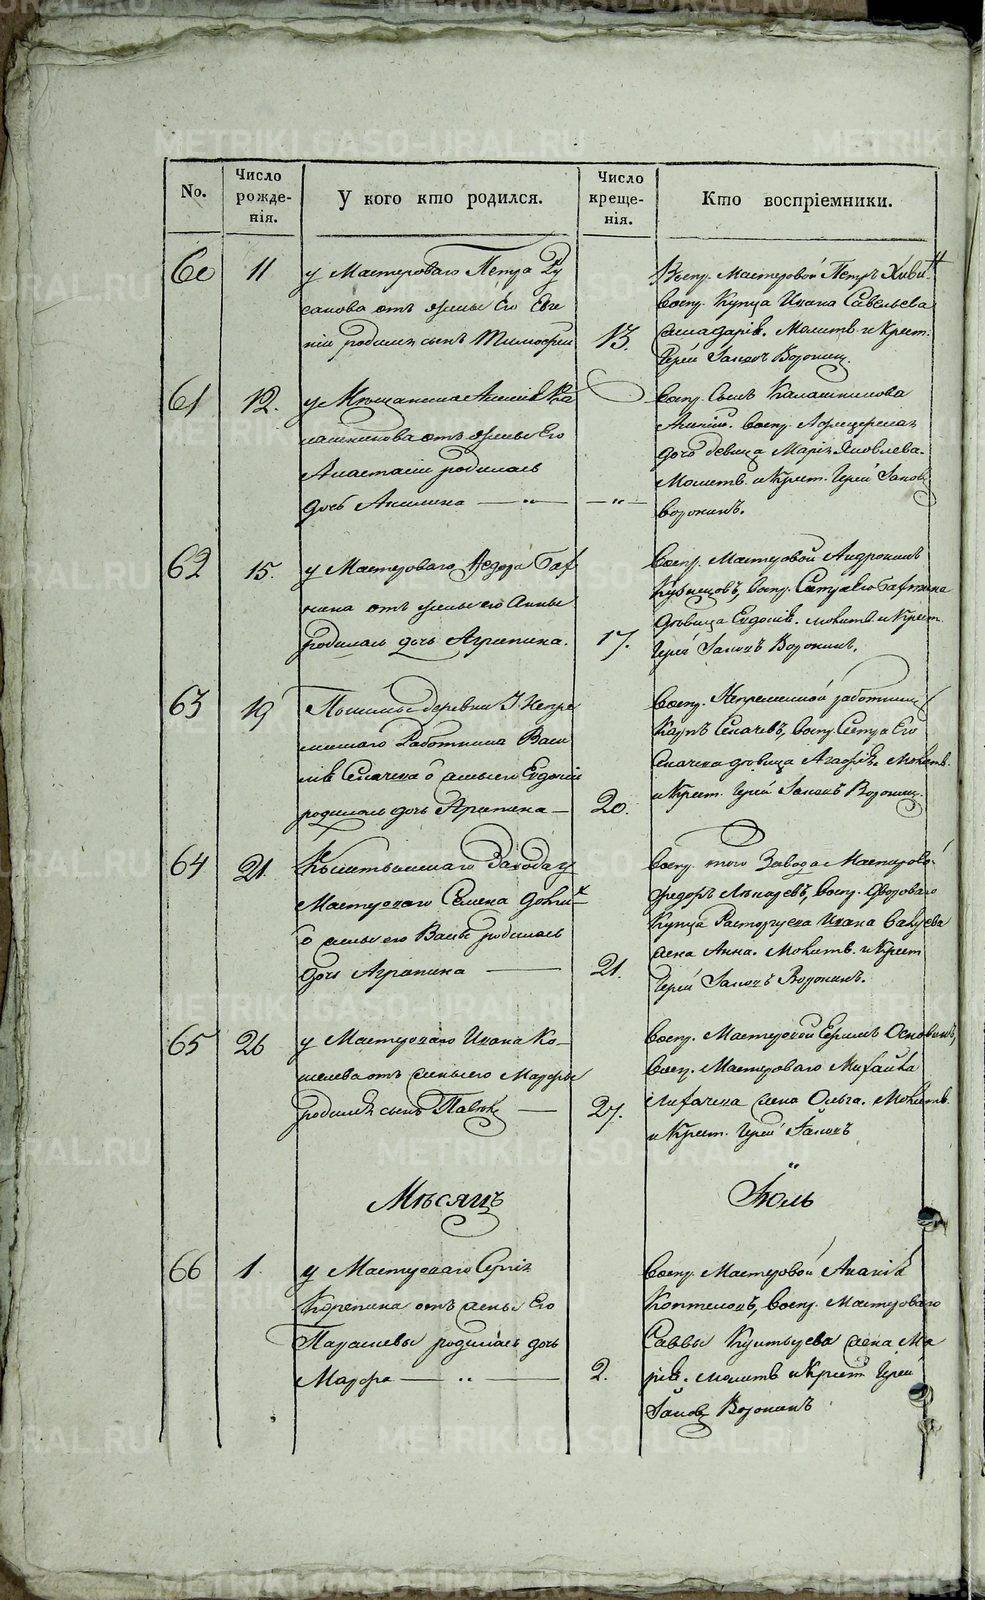 METRIKI.GASO-URAL.RU
No.
Число рожде-нія.
У кого кто родился.
Число креще-нія.
Кто воспріемники.
60
11
у Мастероваго Петра Ру
санова отъ жены Его Евге
ніи родился сынъ Тимофей
13.
Воспр. Мастеровой Петръ
воспр. Купца Ивана Савельева
Молитв. и Крест.
Іерей Іаковъ Воронин.
61
12.
у Мещанина Алексія Ка
лашникова отъ жены Его
Анастасіи родилась
дочь Акилина — „ —
— „ —
воспр. Сынъ Калашникова
воспр.
дочь девица Марія Яковлева.
Молитв. и Крест. Іерей Іаковъ
Воронинъ.
62
15.
у Мастероваго Федора
отъ жены его Анны
родилась дочь Агрипина.
17.
воспр. Мастеровой Андроникъ
Кузнецовъ, воспр. Сестра Его
девица Евдокія. молитв. и Крест.
Іерей Іаковъ Воронинъ.
63
19
деревни У Непре
меннаго Работника Васи
лія Сыпачева о жены его Евдокіи
родилась дочь Агрипина —
20.
воспр. Непременной работникъ
Карпъ Сыпачевъ, воспр. Сестра Его
Сыпачева девица Агафія. Молитв.
и Крест. Іерей Іаковъ Воронин.
64
21.
Кыштымскаго Завода у
Мастероваго Семена
о жены его Васы родилась
дочь Агрипина —
21.
воспр. того Завода Мастерово
Федоръ воспр. дворового
Купца Расторгуева Ивана
жена Анна. Молитв. и Крест
Іерей Іаковъ Воронинъ.
65
26
у Мастероваго Ивана Ко-
шелева отъ жены его Марфы
родился сынъ Павелъ —
27.
воспр. Мастеровой Ермилъ
воспр. Мастероваго Михаила
Лихачева жена Ольга. Молитв.
и Крест. Іерей Іаковъ
Мѣсяцъ
Іюль
66
1.
у Мастероваго Сергія
Корепина отъ жены Его
Параскевы родилась дочь
Марфа — „ —
2.
воспр. Мастеровой Ананій
Коптеловъ, воспр. Мастероваго
Саввы жена Ма
рія. молитв и Крест Іерей
Іаковъ Воронинъ